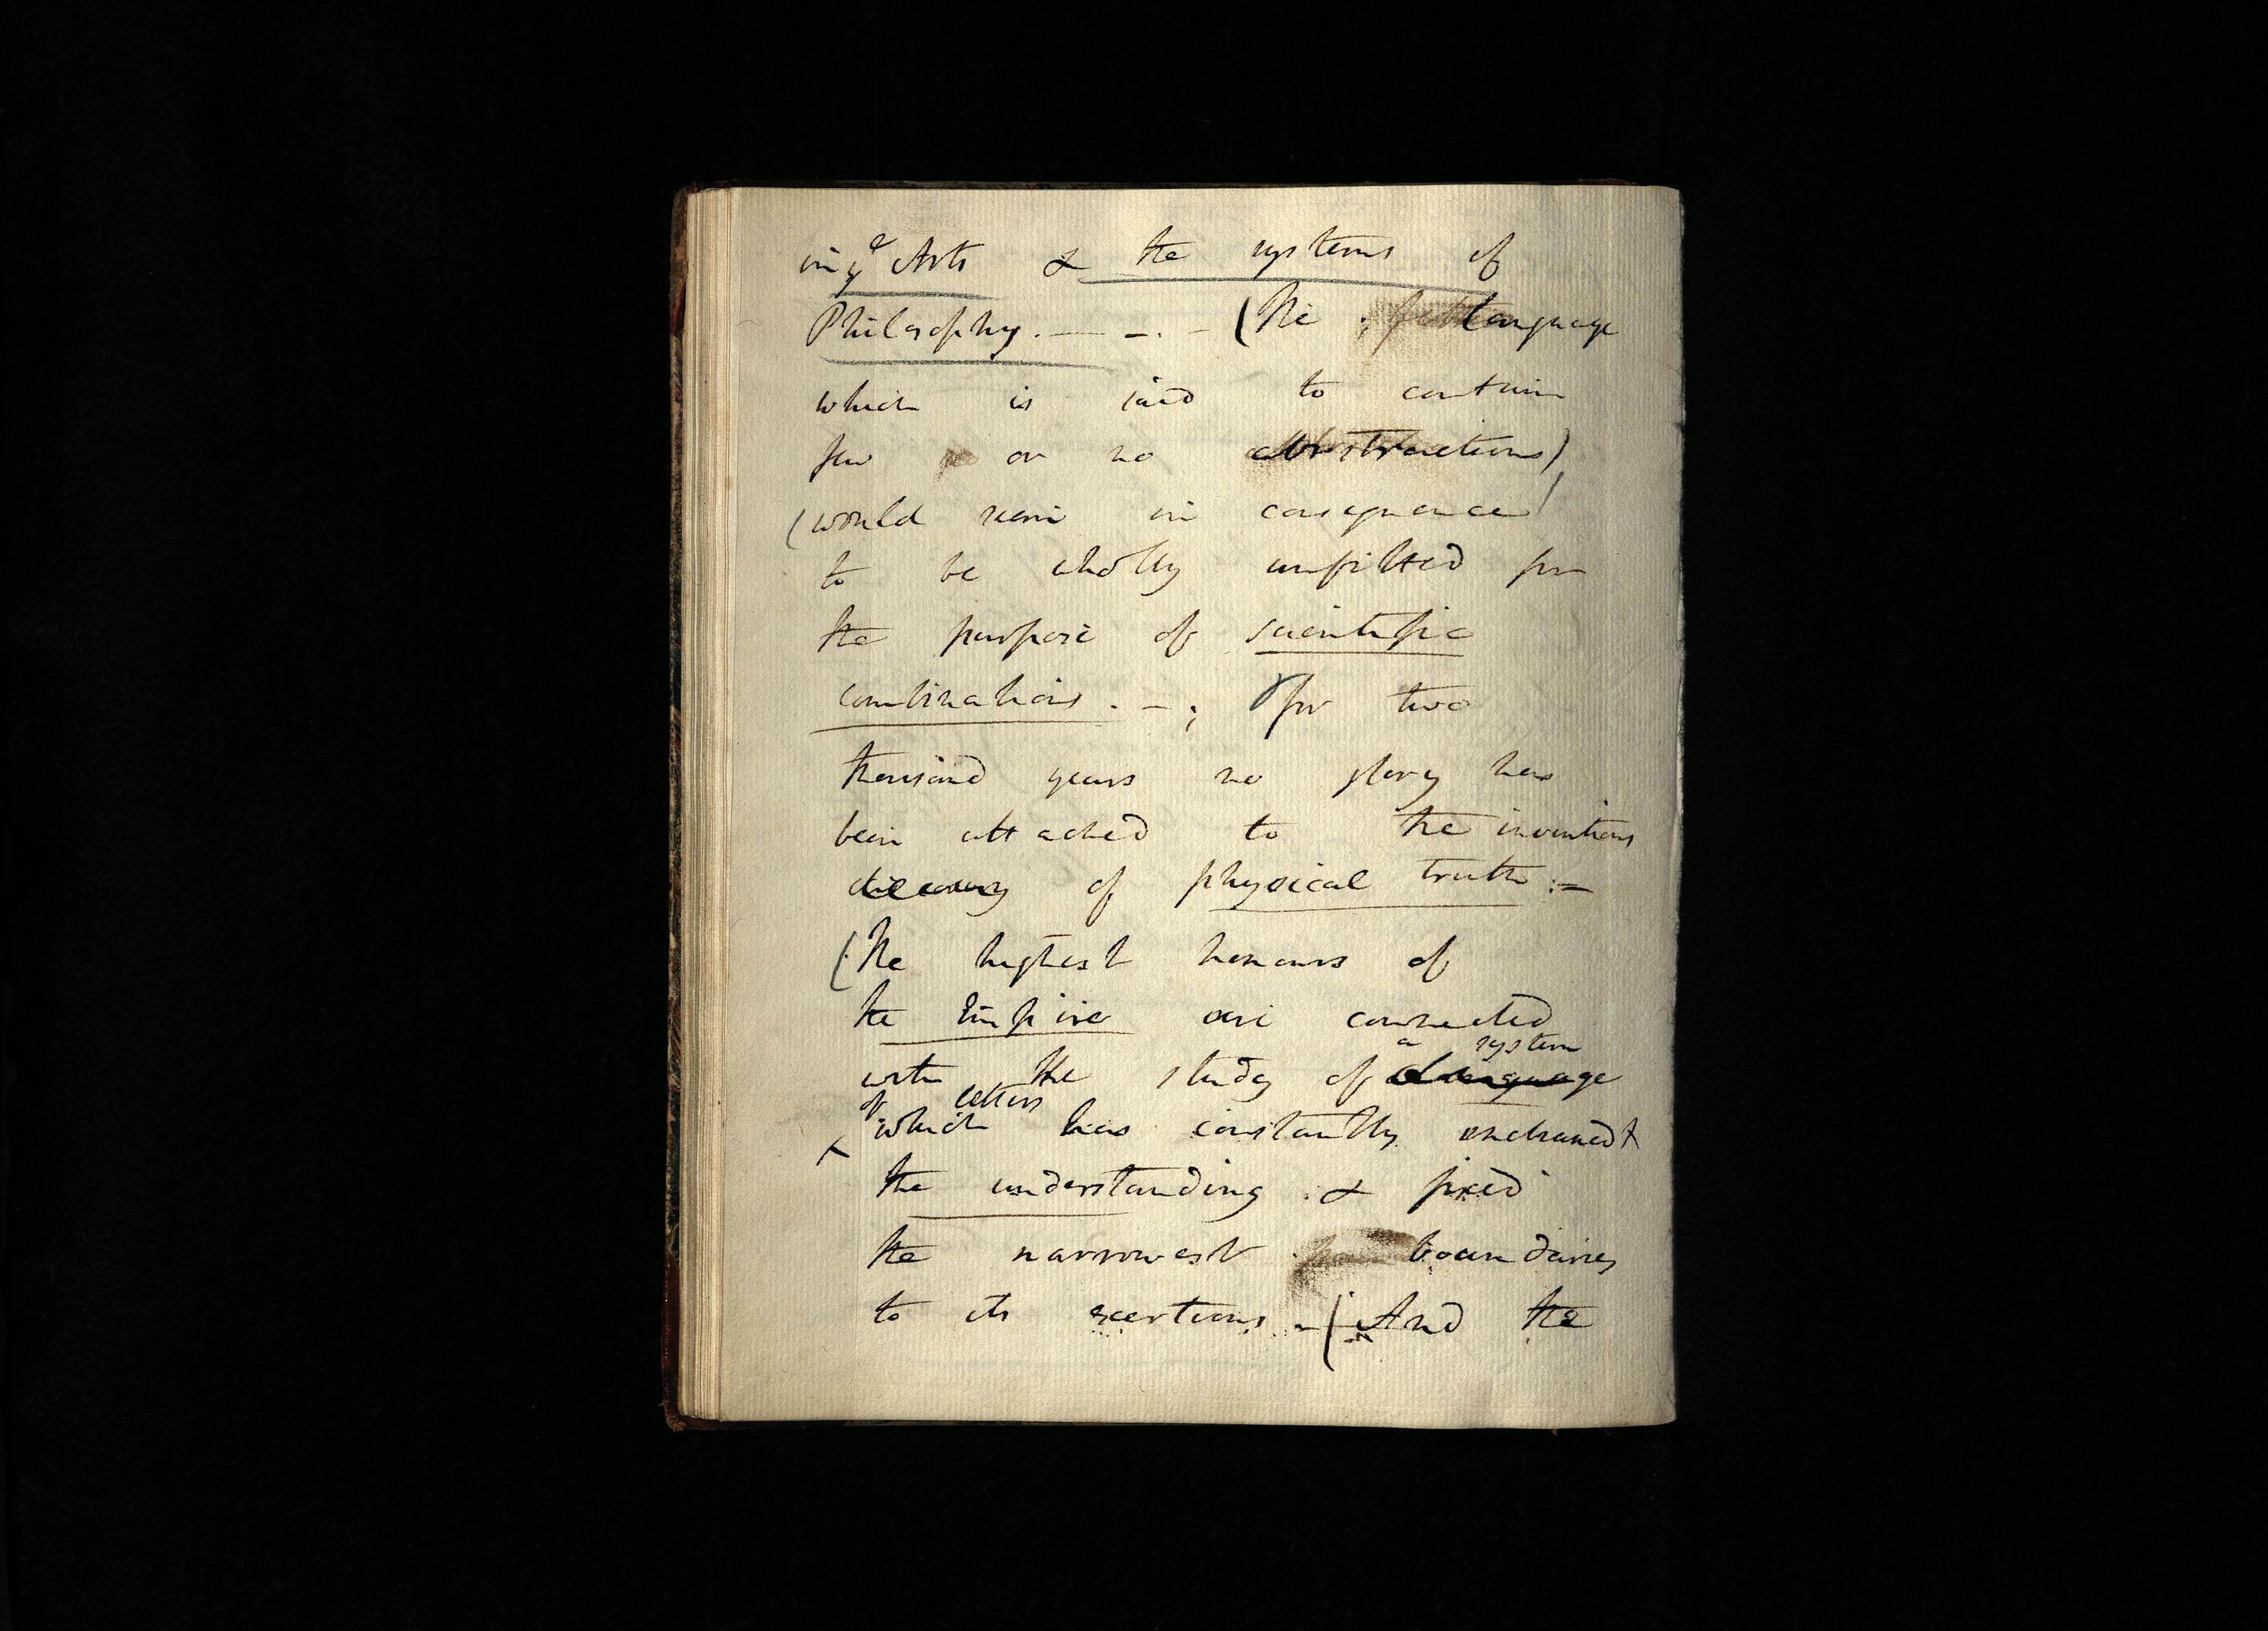 in ye Arts & the systems of
Philosophy. — –. – (The language
which is said to contain
few or no abstractions)
(would seem in consequence)
to be wholly unfitted for
the purpose of scientific
combinations. –; for two
thousand years no glory has
been attached to the inventions
discovery of physical truth :=
(The highest honours of
the Empire are connected
a system
with the study of language
of letters
which has constantly enchained
the understanding & fixed
the narrowest boundaries
to its exertions. – (And the